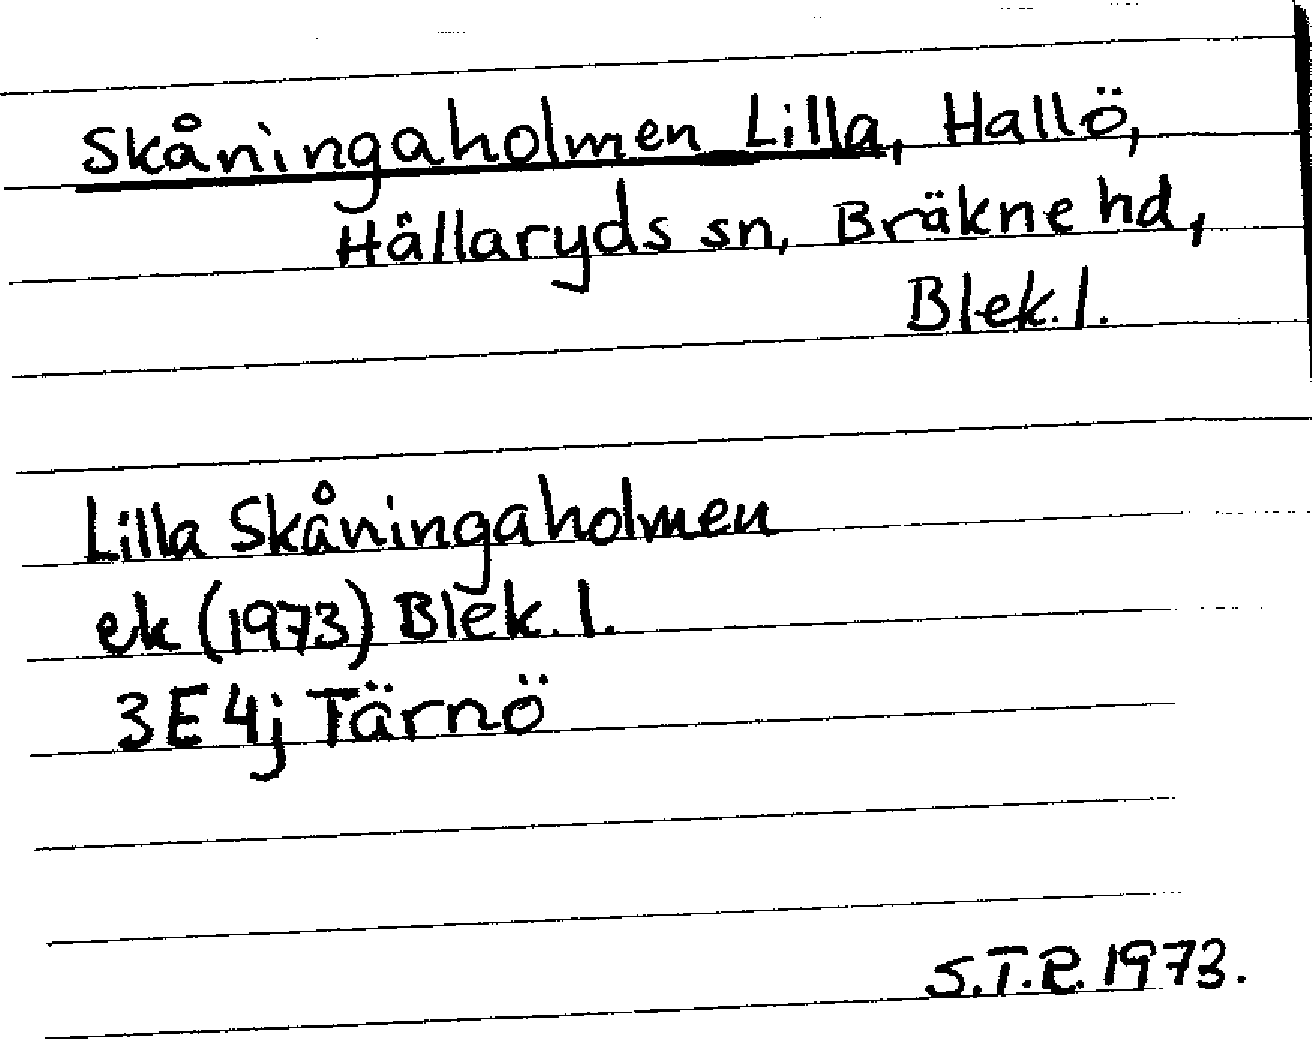 Skåningaholmen Lilla, Hallö,
Hällaryds sn, Bräkne hd,
Blek. l.
Lilla Skåningaholmen
ek (1973) Blek. l.
3E4j Tärnö
S.T.R. 1973.